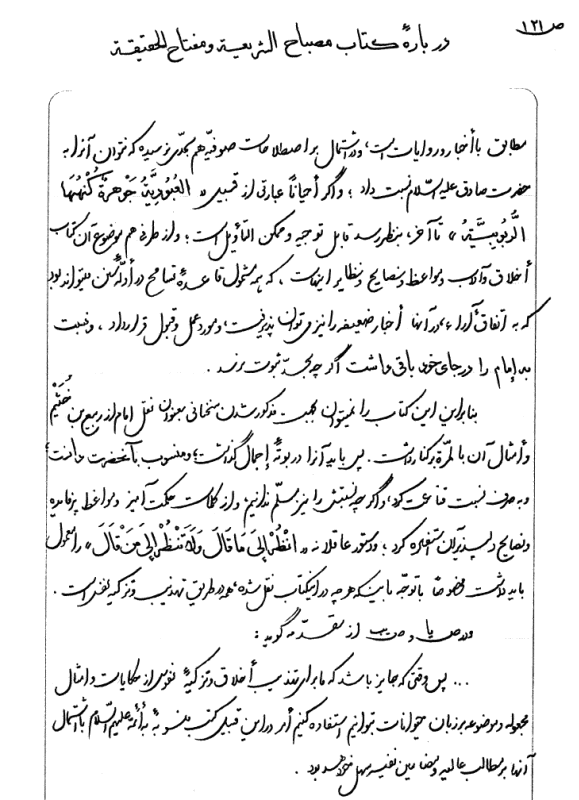 ص ۱۲۱
دربارهٔ کتاب مصباح الشریعة ومفتاح الحقیقة
مطابق با أخبار و روایات است، و اشتمال بر اصطلاحات صوفیه هم بحدّی نرسیده که نتوان آنرا به
حضرت صادق علیه السّلام نسبت داد ؛ و اگر أحیاناً عبارتی از قبیل « العُبُودِیَّةُ جَوْهَرَةٌ کُنْهُهَا
الرُّبُوبِیَّةُ » تا آخر، بنظر رسد قابل توجیه و ممکن التأویل است ؛ و از طرفی هم موضوع آن کتاب
أخلاق و آداب و مواعظ و نصایح و نظایر اینهاست ، که همه مشمول قاعدهٔ تسامح در أدلّهٔ سنن میتواند بود
که به اتّفاق آراء، در آنها أخبار ضعیفه را نیز می‌توان پذیرفت، و مورد عمل و قبول قرار داد ، و نسبت
به إمام را در جای خود باقی داشت اگر چه بحدّ ثبوت نرسد .
بنابراین این کتاب را نمیتوان بجهت مذکور شدن سخنانی بعنوان نقل إمام از ربیع بن خُثَیْم
و أمثال آن بالمرّة برکنار داشت . پس باید آنرا در بوتهٔ إجمال گذاشت، و منسوب بآنحضرت دانست،
و به صرف نسبت قناعت کرد، و اگر چه نسبتش را نیز مسلّم ندانیم، و از کلمات حکمت آمیز و مواعظ پر فایده
و نصایح دلپذیر آن استفاده کرد ؛ و دستور عاقلانهٔ « انْظُرْ إِلَی مَا قَالَ وَلَا تَنْظُرْ إِلَی مَنْ قَالَ » را معمول
باید داشت خصوصاً با توجّه باینکه هر چه در اینکتاب نقل شده، همه در طریق تهذیب و تزکیهٔ نفس است .
و در ص یا و ص یب از مقدّمه گوید :
... پس وقتی که جایز باشد که ما برای تهذیب أخلاق و تزکیهٔ نفوس از حکایات و أمثال
مجعوله و موضوعه بر زبان حیوانات بتوانیم استفاده کنیم أمر در این قبیل کتب منسوبه به أئمّه علیهم السّلام با اشتمال
آنها بر مطالب عالیه و مضامین نفیسه سهل خواهد بود .